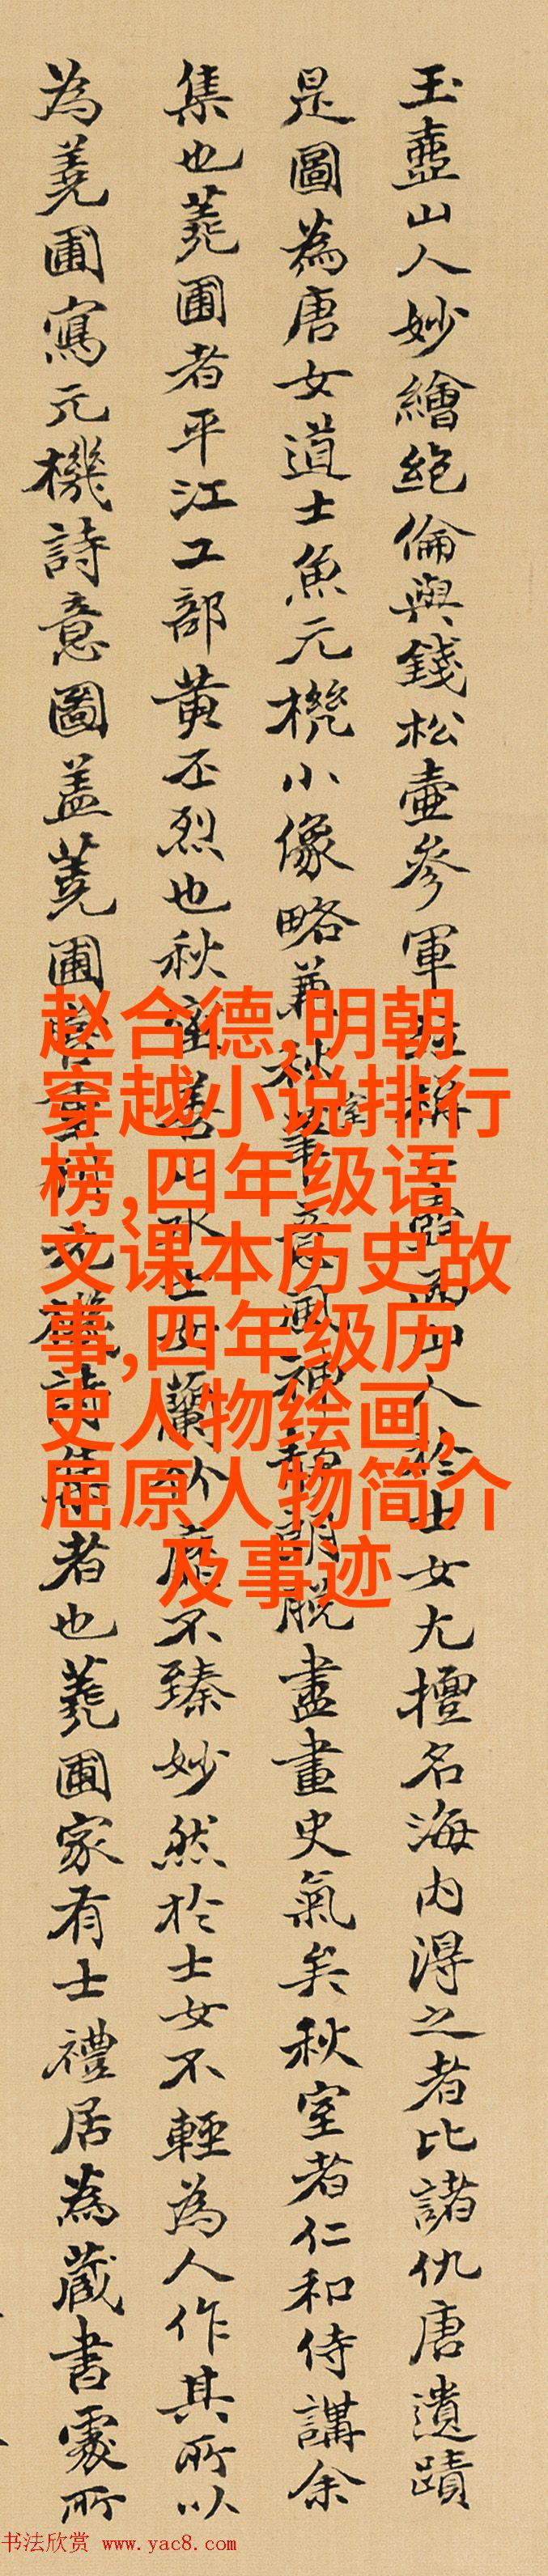 玉壺山人妙繪絶倫與錢松壺參軍人於士女尤擅名海内得之者比諸仇唐遺蹟
是圖為唐女道士魚元機小像略兼秋室筆意風神朗脱盡畫史氣矣秋室者仁和侍講余
集也蕘圃者平江工部黄丕烈也秋室善山水蘭竹靡不臻妙然於士女不輕為人作其所以
為蕘圃寫元機詩意圖盖蕘圃元機詩集者也蕘圃家有士禮居為藏書處所
赵合德,明朝
穿越小说排行
榜,四年级语
文课本历史故
事,四年级历
史人物绘画,
屈原人物简介
及事迹
书法欣赏 www.yac8.com